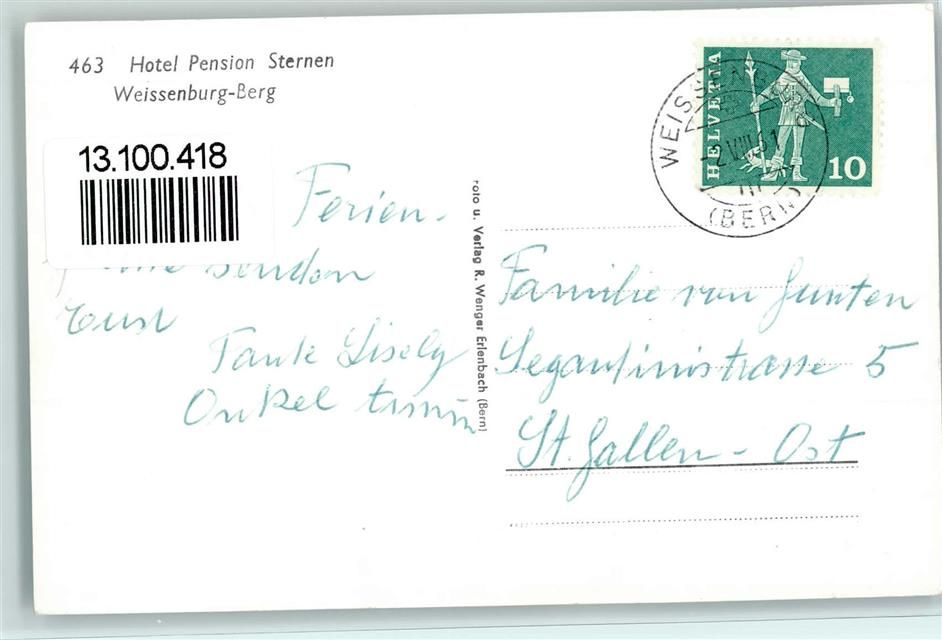 463 Hotel Pension Sternen
Weissenburg-Berg
13.100.418
Ferien-
senden
Euch
Tante Lisely
Onkel
Foto u. Verlag R. Wenger Erlenbach (Bern)
HELVETIA
10
(BERN)
Familie von Gunten
Segantinistrasse 5
St. Gallen - Ost